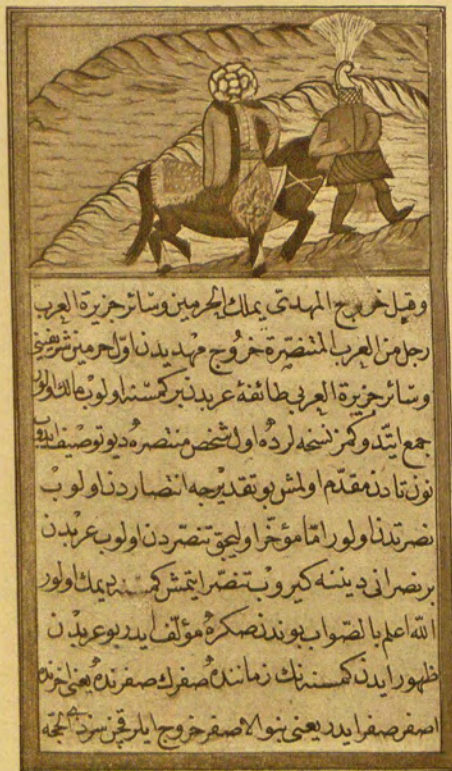 وقبل خروج المهدى يملك الحرمين وسائر جزيرة العرب
رجل من العرب المتنصرة خروج مهديدن اول حرمين شريفينى
وسائر جزيرة العربى طائفهٔ عربدن بر كمسنه اولوب مالك اولور
جمع ايتدوكمز نسخه لرده اول شخص منتصره ديو توصيف
نون تادن مقدم اولمش بو تقديرجه انتصاردن اولوب
نصرتدن اولور اما مؤخر اوليجق تنصردن اولوب عربدن
بر نصرانى ديننه كيروب تنصر ايتمش كمسنه ديمك اولور
الله اعلم بالصواب بوندن صكره مؤلف ايدر بو عربدن
ظهور ايدن كمسنه نك زماننده صفرك صفرنده يعنى اخرنده
اصفر صفر ايدر يعنى بنو الاصفر خروج ايلر قچن